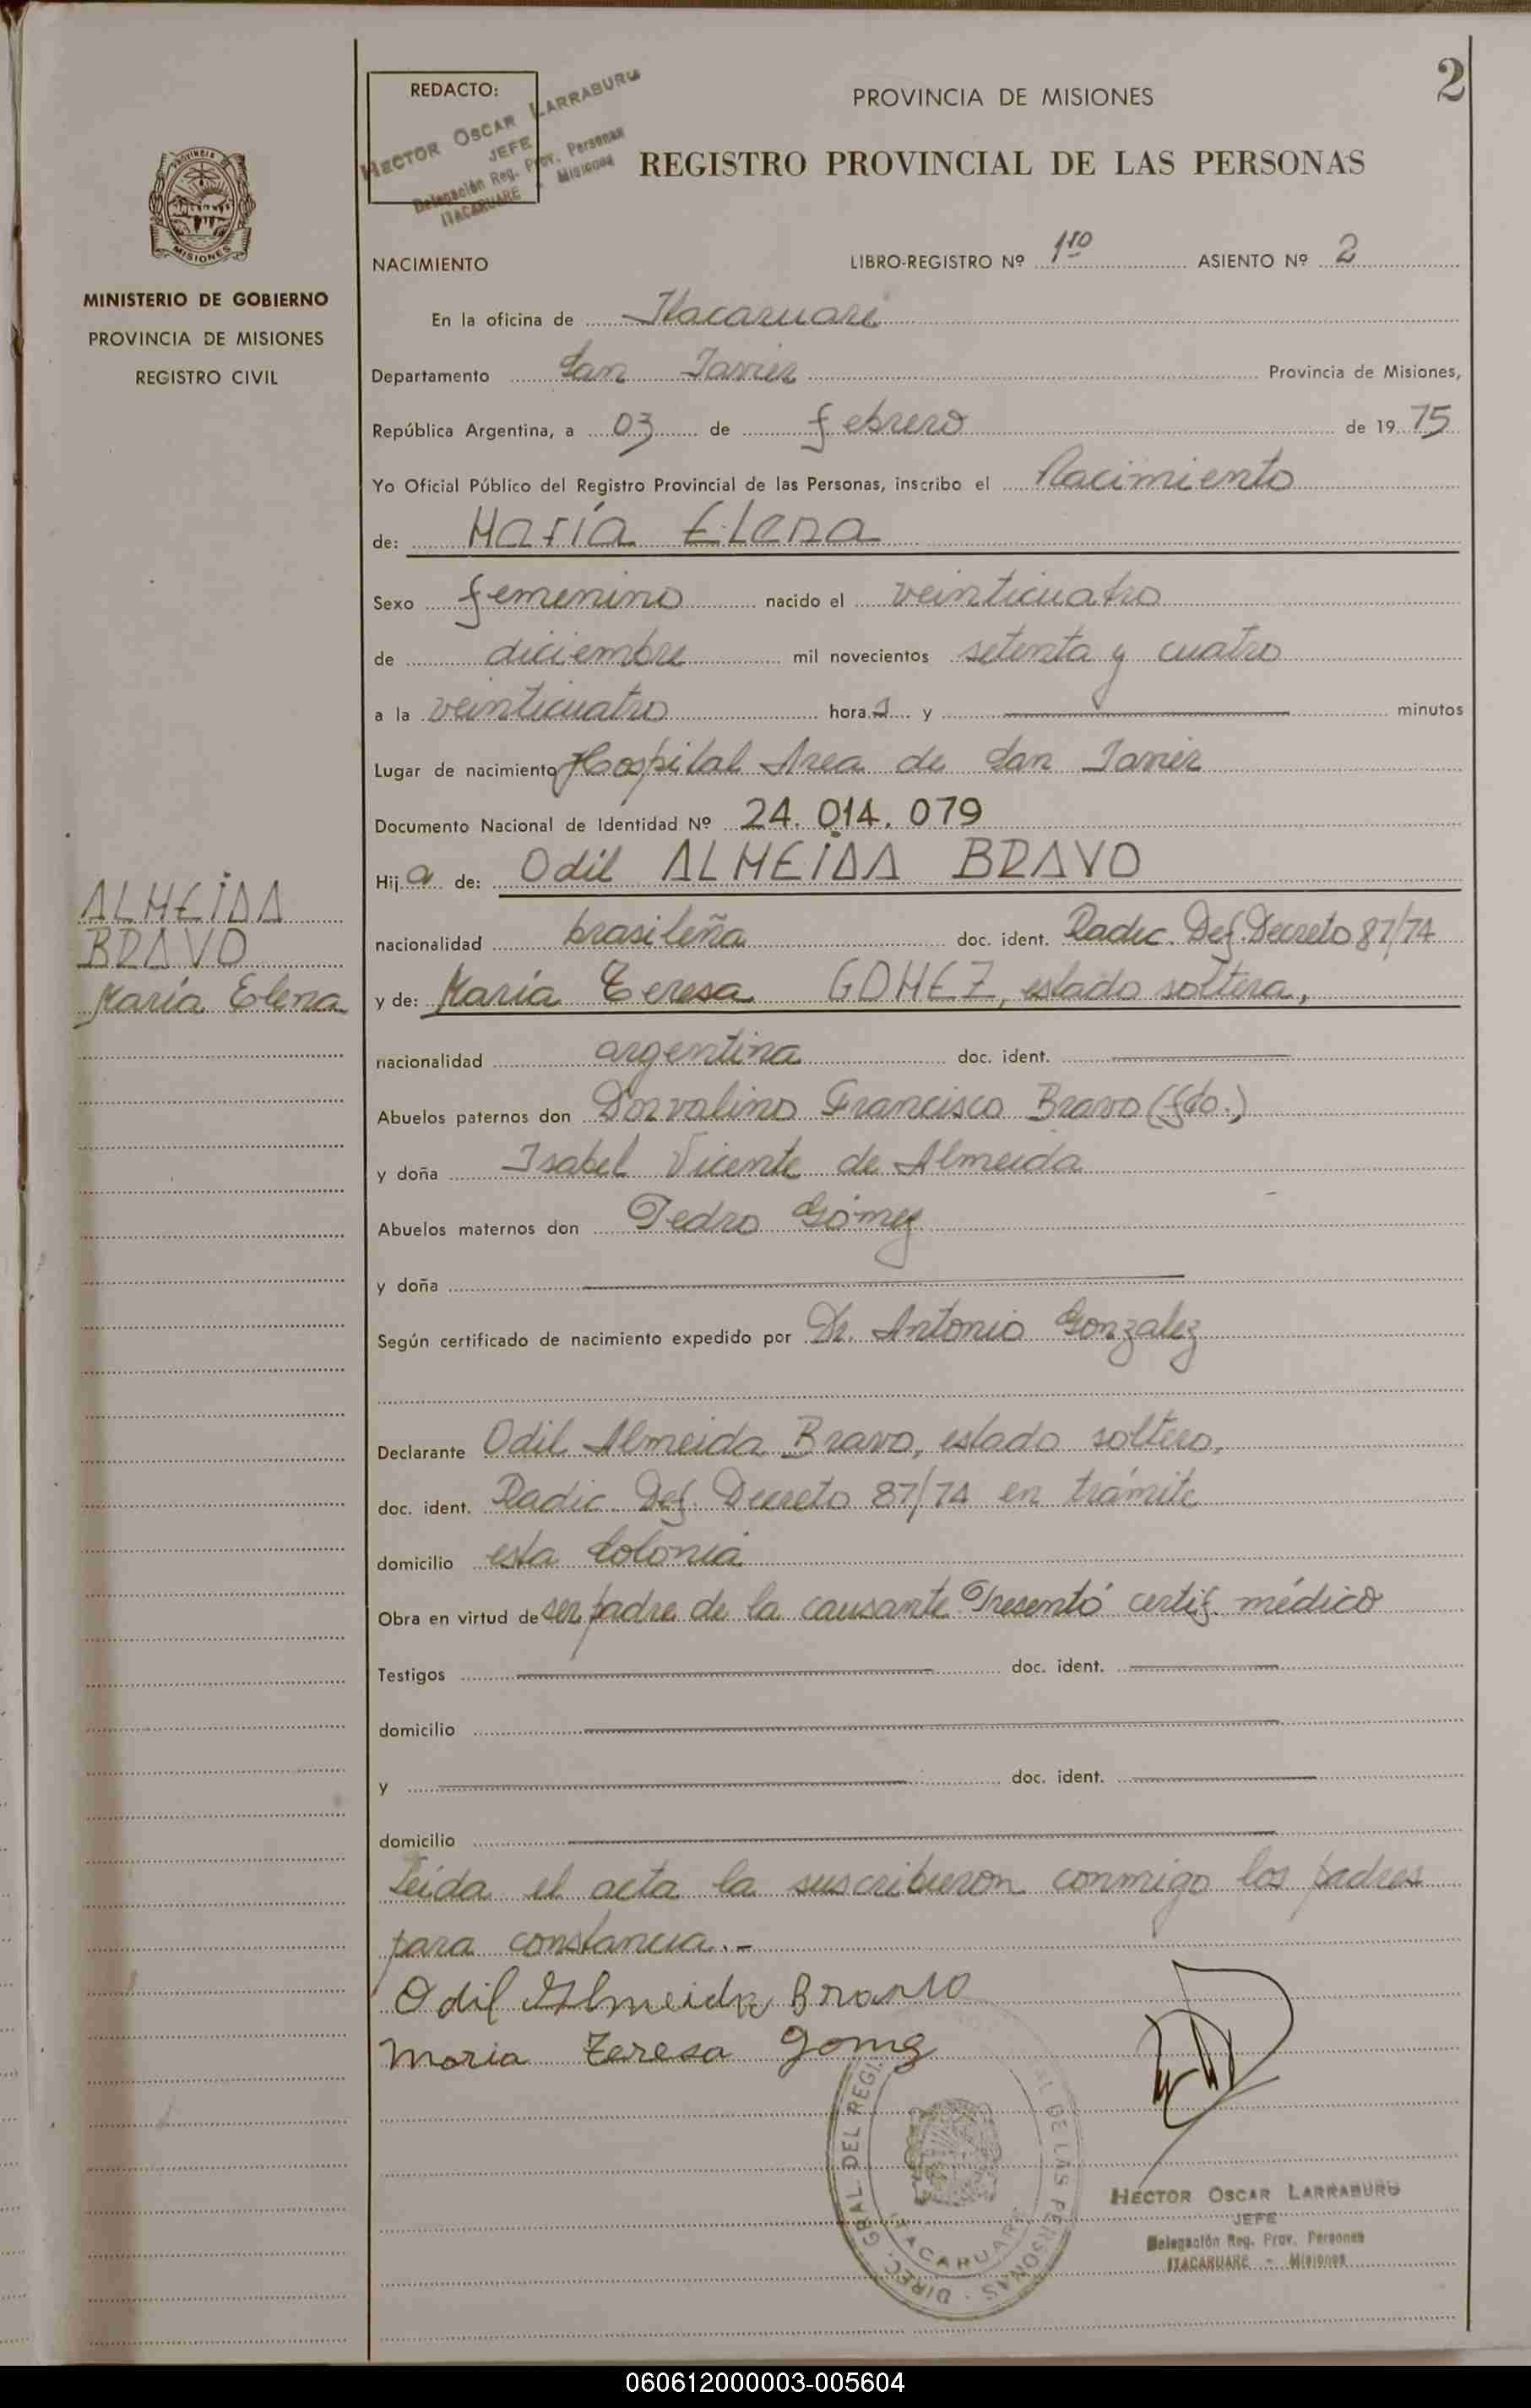 2
REDACTO:
HECTOR OSCAR LARRABURU
JEFE
Delegación Reg. Prov. Personas
ITACARUARE - Misiones
PROVINCIA DE MISIONES
REGISTRO PROVINCIAL DE LAS PERSONAS
MISIONES
MINISTERIO DE GOBIERNO
PROVINCIA DE MISIONES
REGISTRO CIVIL
NACIMIENTO LIBRO-REGISTRO Nº 1ro ASIENTO Nº 2
En la oficina de Itacaruaré
Departamento San Javier Provincia de Misiones,
República Argentina, a 03 de febrero de 1975
Yo Oficial Público del Registro Provincial de las Personas, inscribo el Nacimiento
de: María Elena
Sexo femenino nacido el veinticuatro
de diciembre mil novecientos setenta y cuatro
a la veinticuatro hora s y minutos
Lugar de nacimiento Hospital Area de San Javier
Documento Nacional de Identidad Nº 24.014.079
Hij a de: Odil ALMEIDA BRAVO
nacionalidad brasileña doc. ident. Radic. Def. Decreto 87/74
ALMEIDA
BRAVO
María Elena
y de: María Teresa GOMEZ, estado soltera,
nacionalidad argentina doc. ident.
Abuelos paternos don Dorvalino Francisco Bravo (fdo.)
y doña Isabel Vicente de Almeida
Abuelos maternos don Pedro Gómez
y doña
Según certificado de nacimiento expedido por Dr. Antonio Gonzalez
Declarante Odil Almeida Bravo, estado soltero,
doc. ident. Radic. Def. Decreto 87/74 en trámite
domicilio esta Colonia
Obra en virtud de ser padre de la causante. Presentó certif. médico
Testigos doc. ident.
domicilio
y doc. ident.
domicilio
Leída el acta la suscribieron conmigo los padres
para constancia.-
Odil Almeida Bravo
Maria Teresa Gomez
DIREC. GRAL DEL REGI AL DE LAS PERSONAS
ITACARUARE
HECTOR OSCAR LARRABURU
JEFE
Delegación Reg. Prov. Personas
ITACARUARE - Misiones
060612000003-005604